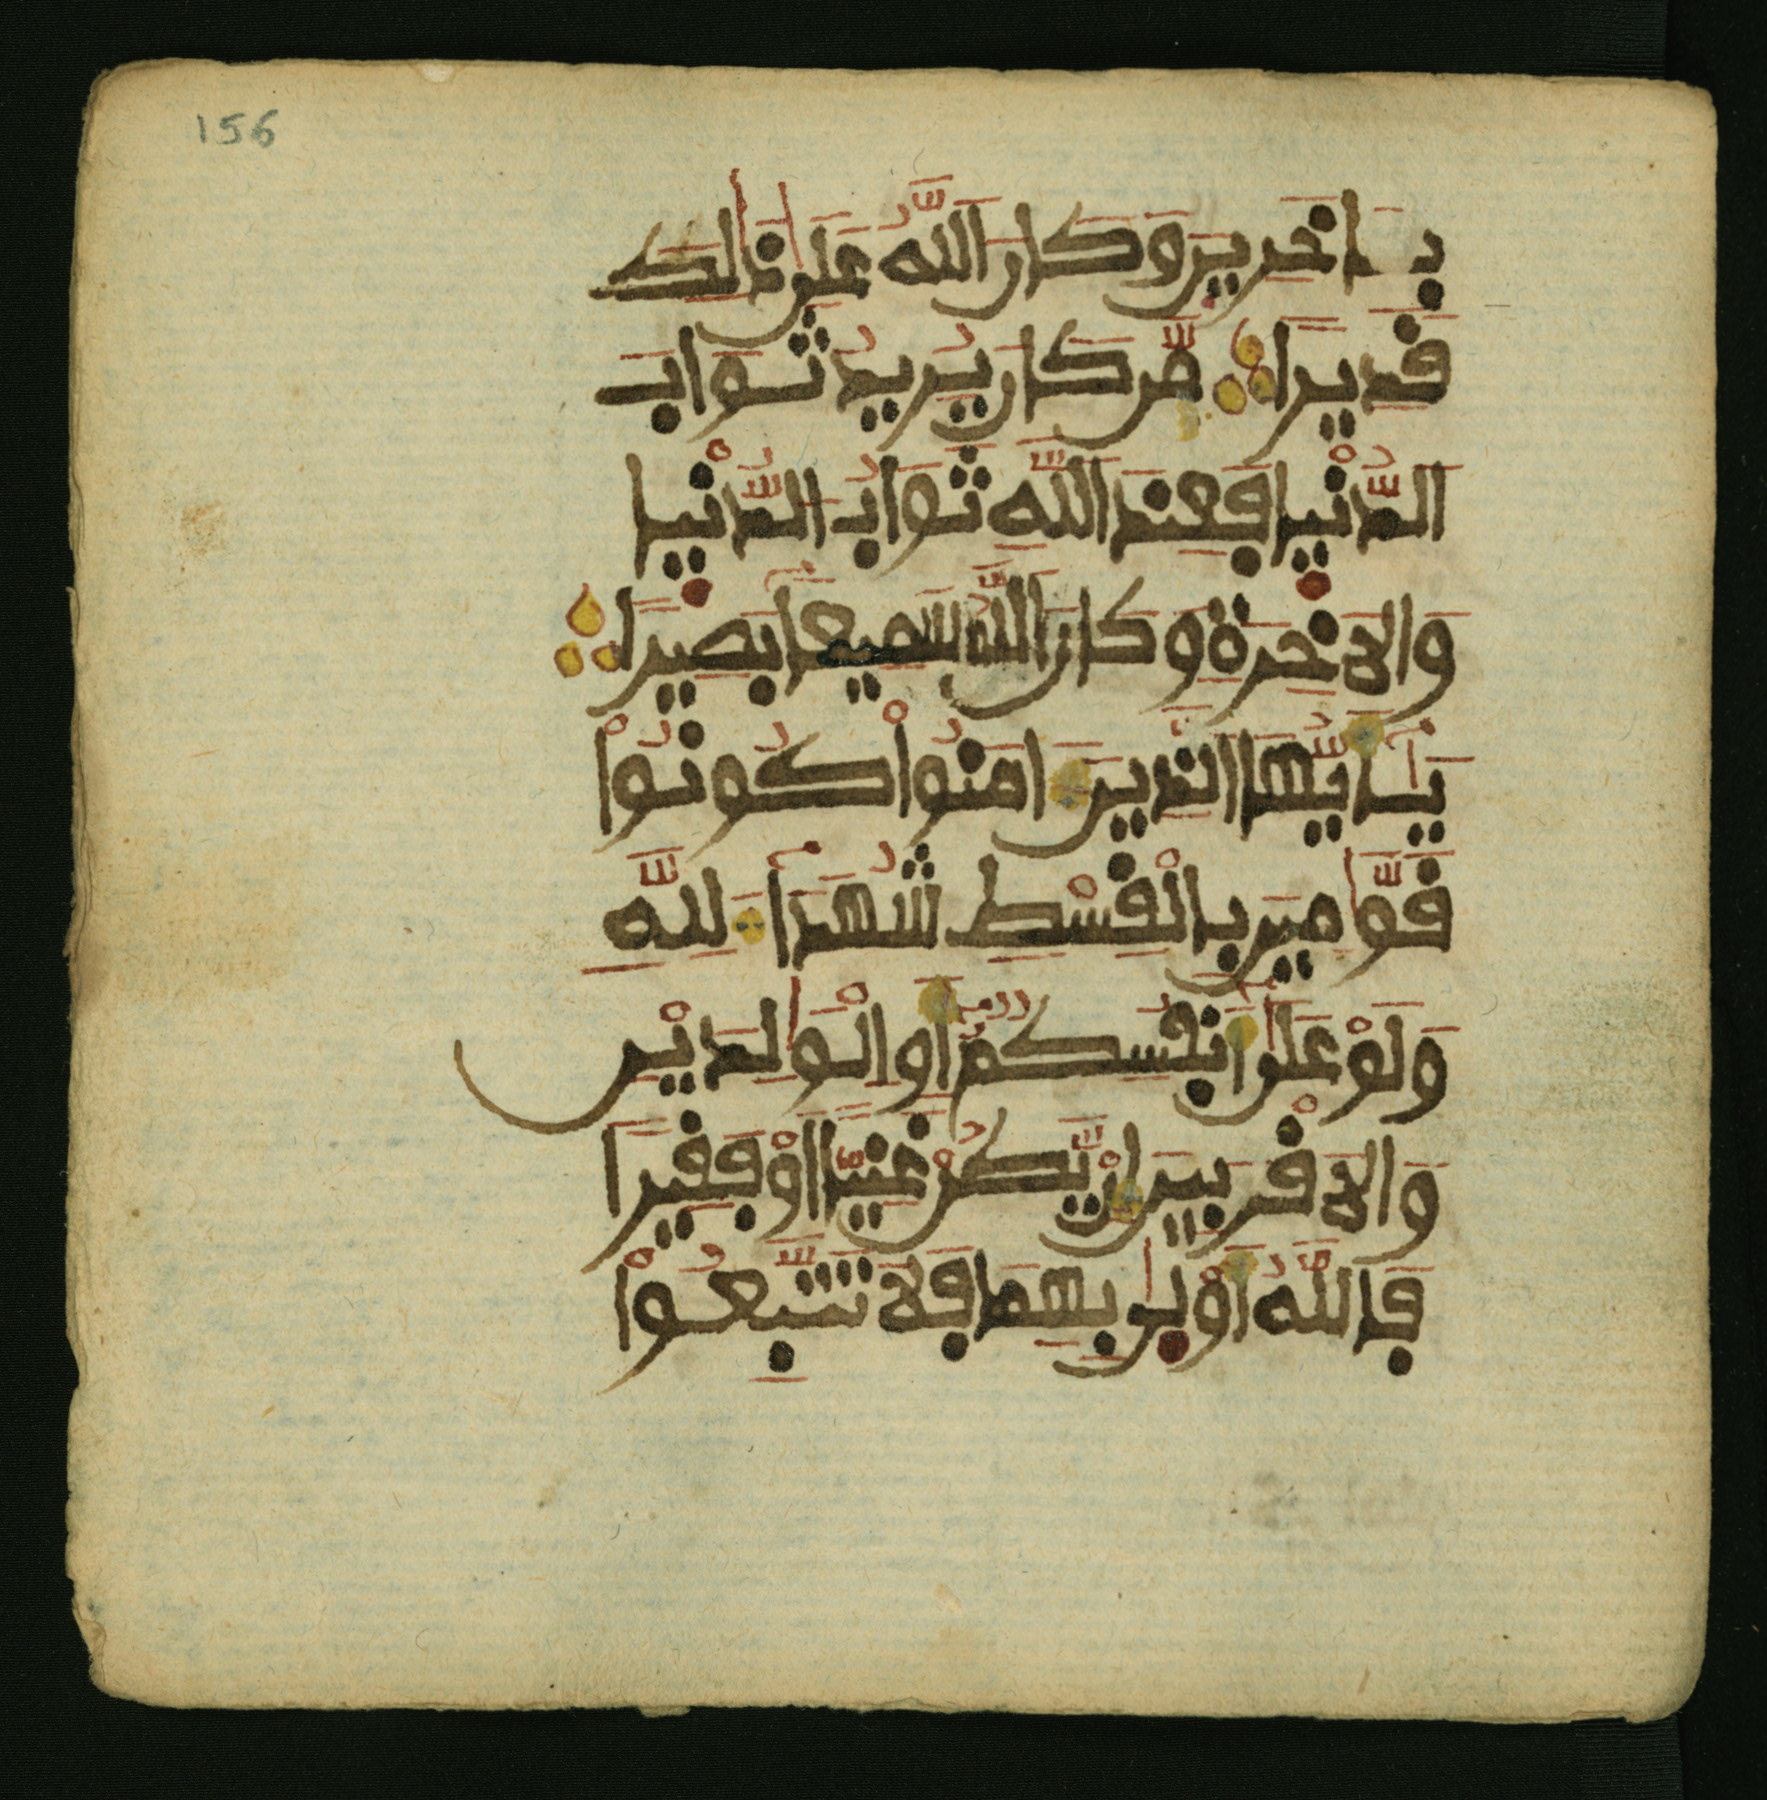 156
بِـَٔاخَرِينَ وَكَانَ اللَّهُ عَلَىٰ ذَٰلِكَ
قَدِيرًا مَّن كَانَ يُرِيدُ ثَوَابَ
الدُّنْيَا فَعِندَ اللَّهِ ثَوَابُ الدُّنْيَا
وَالَاخِرَةِ وَكَانَ اللَّهُ سَمِيعًا بَصِيرًا
يَٰأَيُّهَا الَّذِينَ ءَامَنُواْ كُونُواْ
قَوَّٰمِينَ بِالْقِسْطِ شُهَدَآءَ لِلَّهِ
وَلَوْ عَلَىٰٓ أَنفُسِكُمُۥٓ أَوِ الْوَٰلِدَيْنِ
وَالَاقْرَبِينَ إِنْ يَّكُنْ غَنِيًّا اَوْ فَقِيرًا
فَاللَّهُ أَوْلَىٰ بِهِمَا فَلَا تَتَّبِعُواْ